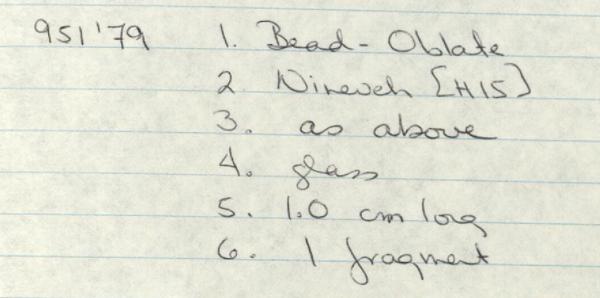 951'79 1. Bead - Oblate
2 Nineveh [H15]
3. as above
4. glass
5. 1.0 cm long
6. 1 fragment